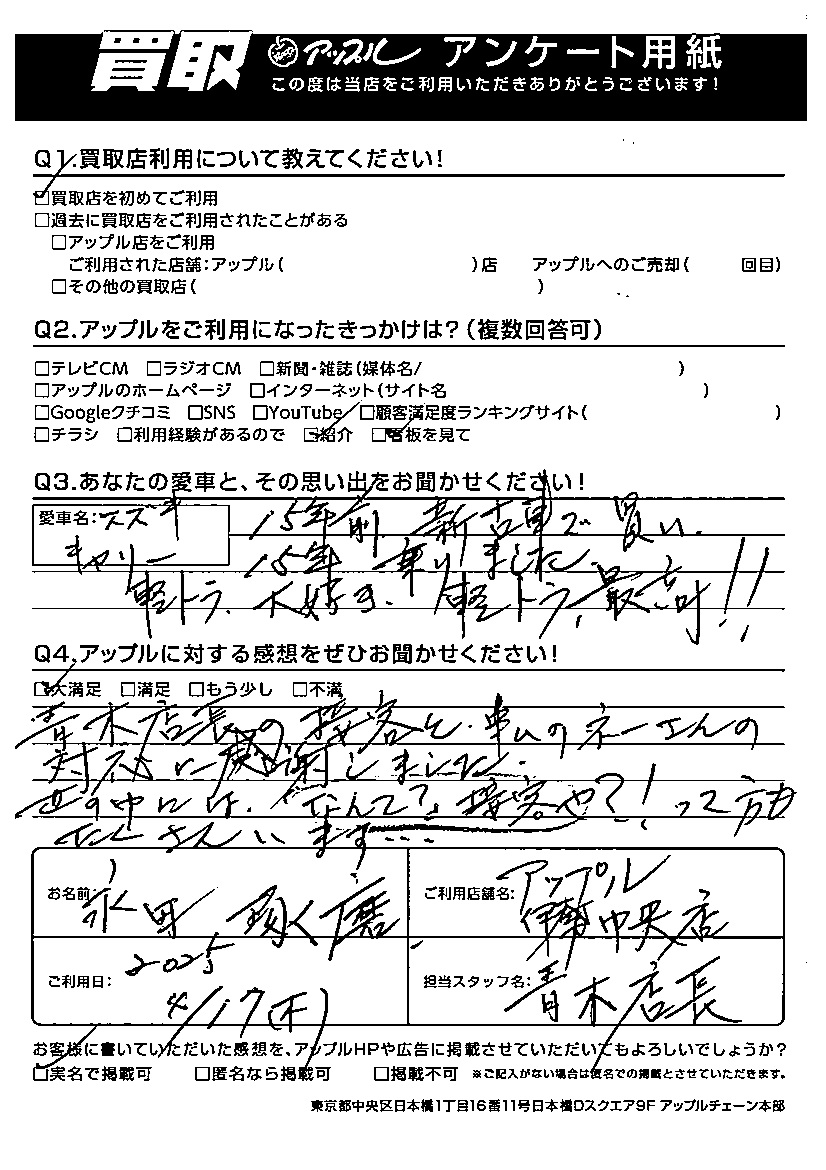 買取 アップル アンケート用紙
この度は当店をご利用いただきありがとうございます!
Q1.買取店利用について教えてください!
□買取店を初めてご利用
□過去に買取店をご利用されたことがある
□アップル店をご利用
ご利用された店舗:アップル( )店 アップルへのご売却( 回目)
□その他の買取店( )
Q2.アップルをご利用になったきっかけは?(複数回答可)
□テレビCM □ラジオCM □新聞・雑誌(媒体名/ )
□アップルのホームページ □インターネット(サイト名 )
□Googleクチコミ □SNS □YouTube □顧客満足度ランキングサイト( )
□チラシ □利用経験があるので □紹介 □看板を見て
Q3.あなたの愛車と、その思い出をお聞かせください!
愛車名:スズキ 15年前、新古車で買い、
キャリー 15年 乗りました
軽トラ、大好き、軽トラ、最高!!
Q4.アップルに対する感想をぜひお聞かせください!
□大満足 □満足 □もう少し □不満
青木店長の接客と、串山のネーさんの
対応に感謝しました。
世の中には、「なんて?」接客や?!って方
たくさんいます…
お名前: 永田 ご利用店舗名: アップル
伊勢中央店
ご利用日: 2025
4/17(木) 担当スタッフ名: 青木店長
お客様に書いていただいた感想を、アップルHPや広告に掲載させていただいてもよろしいでしょうか?
□実名で掲載可 □匿名なら掲載可 □掲載不可 ※ご記入がない場合は匿名での掲載とさせていただきます。
東京都中央区日本橋1丁目16番11号日本橋Dスクエア9F アップルチェーン本部